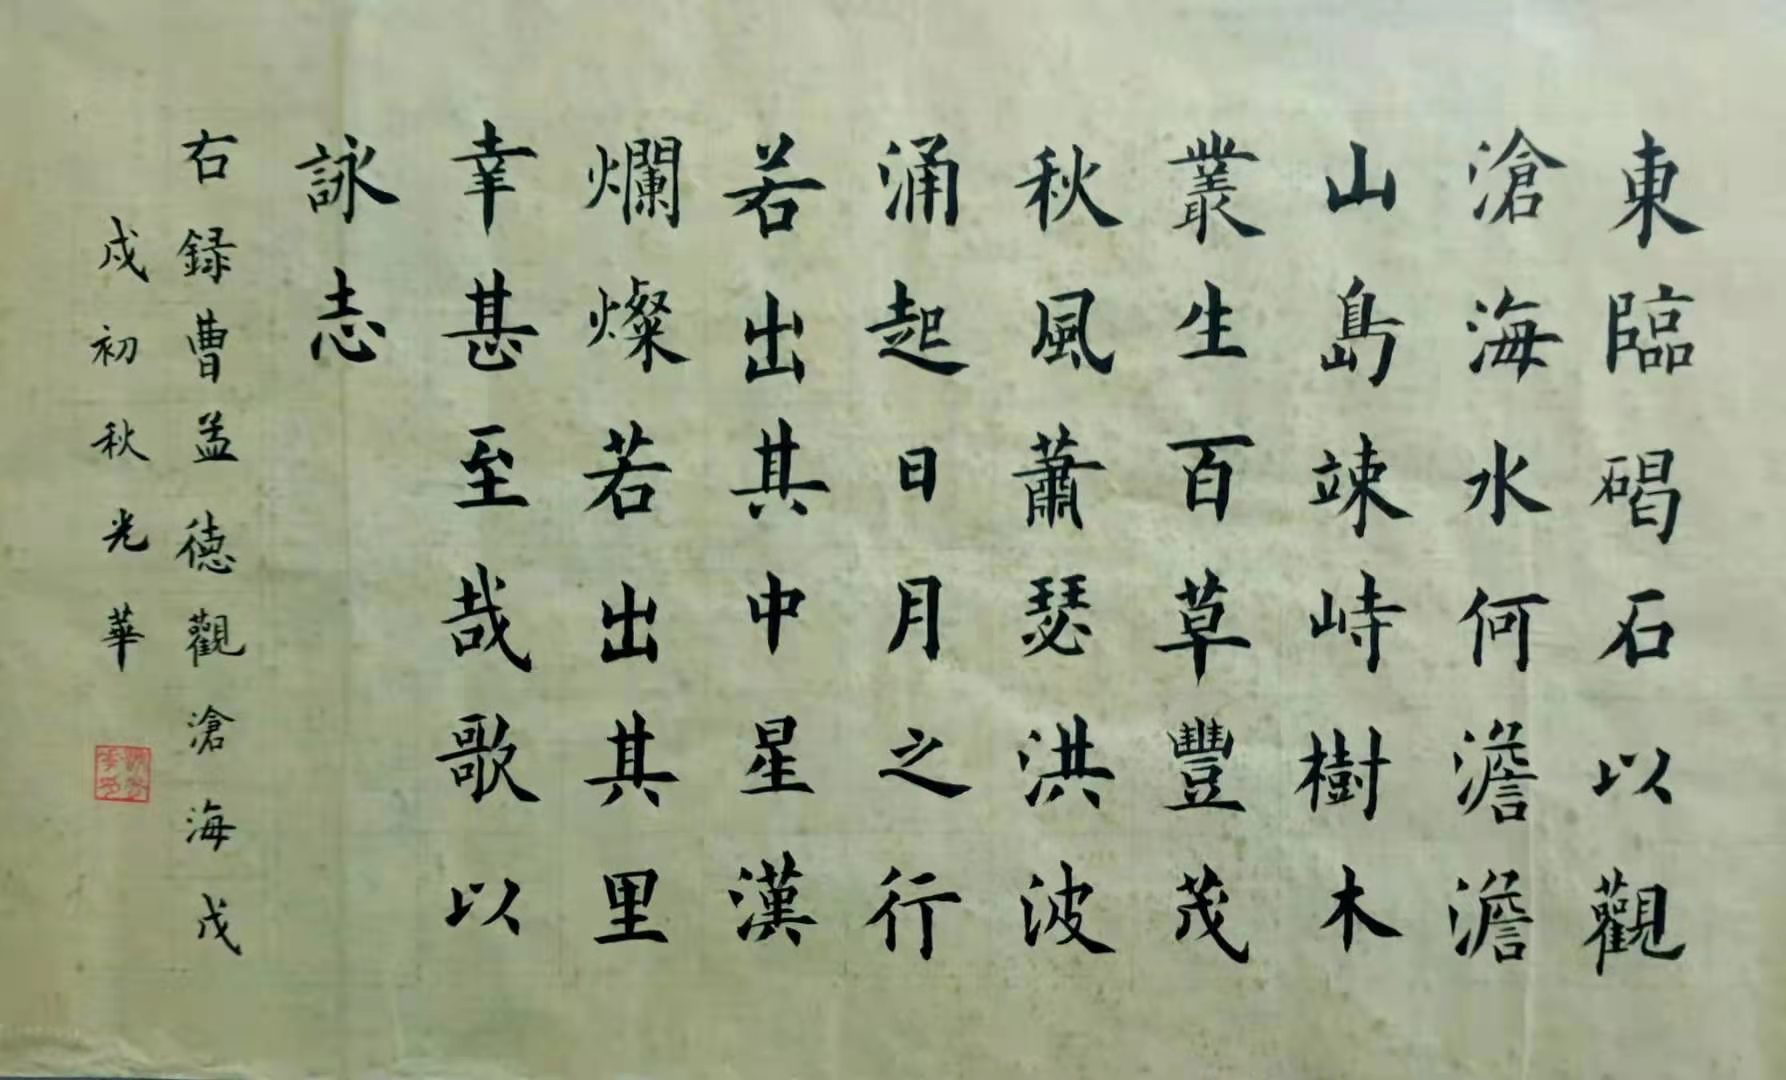 東臨碣石以觀
滄海水何澹澹
山島竦峙樹木
叢生百草豐茂
秋風蕭瑟洪波
涌起日月之行
若出其中星漢
爛燦若出其里
幸甚至哉歌以
詠志
右録曹孟德觀滄海戊
戌初秋光華